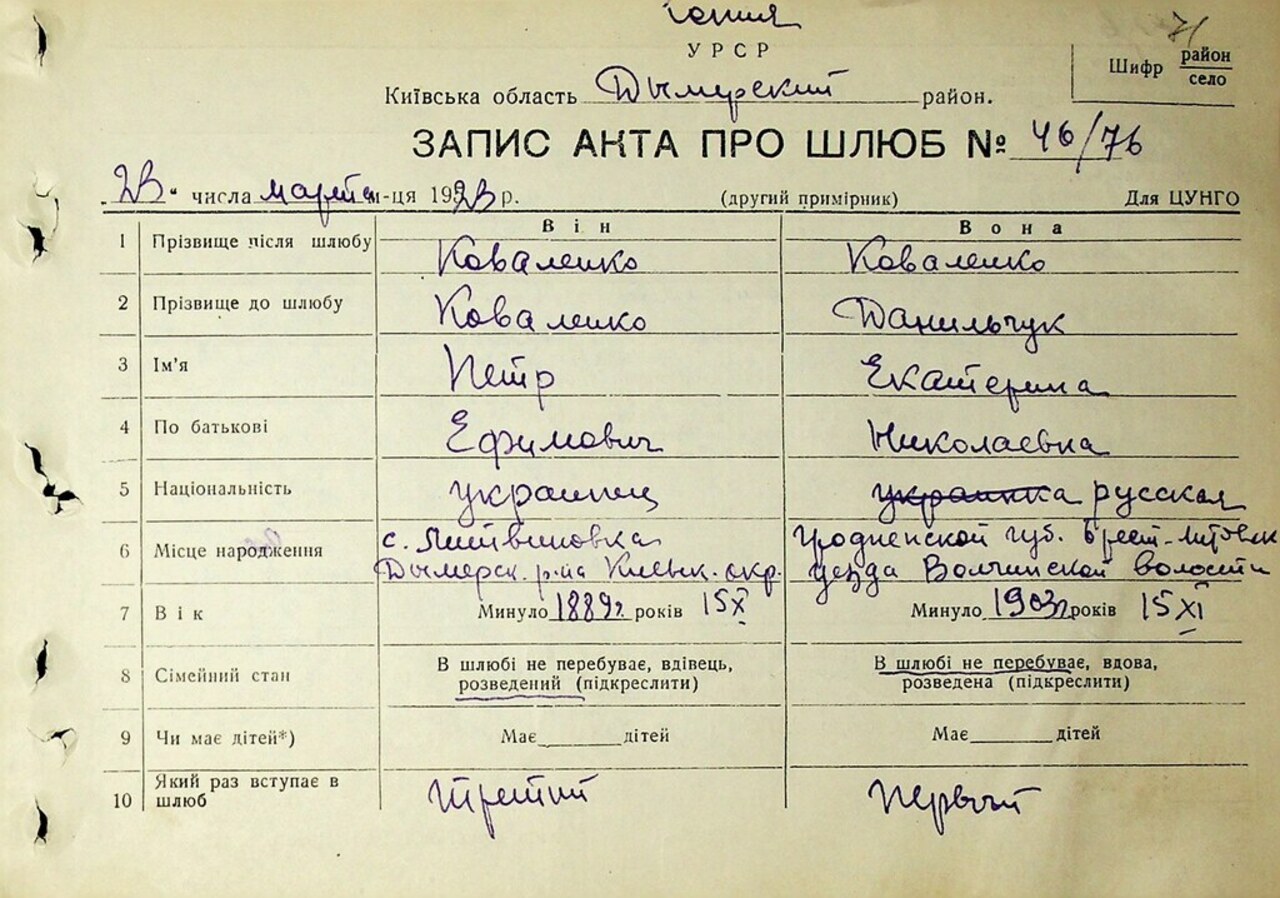 копия
71
УРСР
Шифр район
село
Київська область Дымерский район.
ЗАПИС АКТА ПРО ШЛЮБ № 46/76
"23" числа марта м-ця 1923 р. (другий примірник) Для ЦУНГО
Він Вона
1 Прізвище після шлюбу Коваленко Коваленко
2 Прізвище до шлюбу Коваленко Данильчук
3 Ім'я Петр Екатерина
4 По батькові Ефимович Николаевна
5 Національність украинец украинка русская
6 Місце народження с. Литвиновка Гродненской губ. Брест-Литовск
Дымерск. р-на Киевск. окр. уезда Волчинской волости
7 Вік Минуло 1889г. років 15 XI Минуло 1903г. років 15 XI
8 Сімейний стан В шлюбі не перебуває, вдівець, В шлюбі не перебуває, вдова,
розведений (підкреслити) розведена (підкреслити)
9 Чи має дітей*) Має______дітей Має______дітей
10 Який раз вступає в
шлюб третий первый